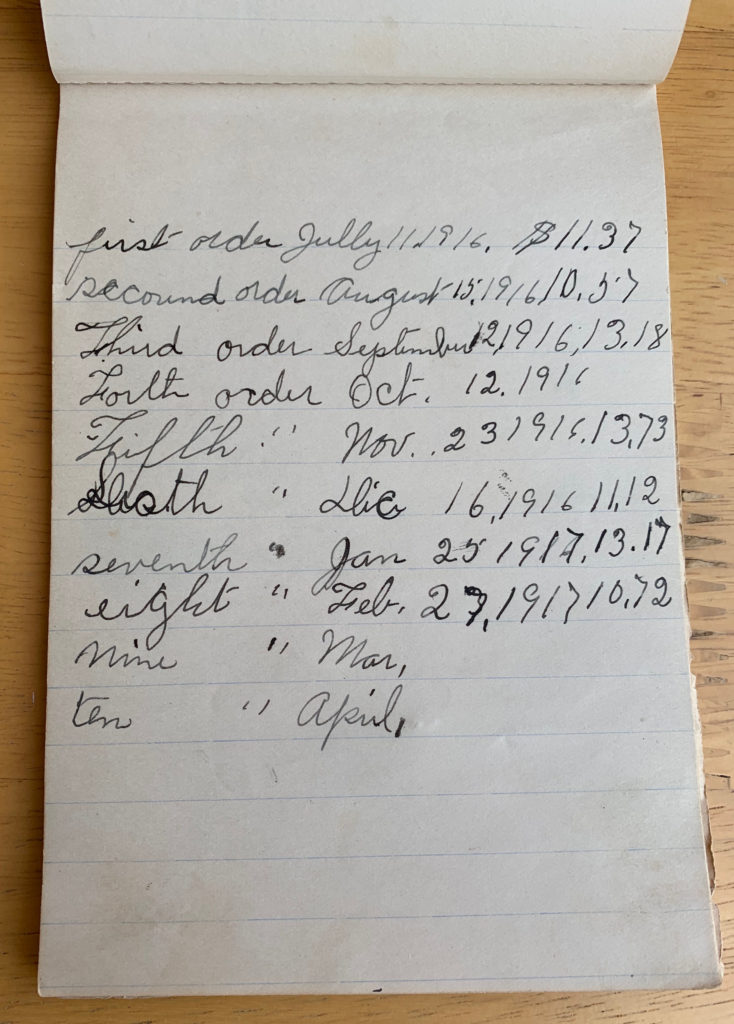 first order Jully 11, 1916. $11.37
secound order August 15, 1916 10.57
Third order September 12, 1916, 13.18
Forth order Oct. 12. 1916
Fifth " Nov. 23 1916. 13,73
" Dic 16, 1916 11,12
seventh " Jan 25 1917, 13.17
eight " Feb. 27, 1917 10,72
nine " Mar,
ten " April,